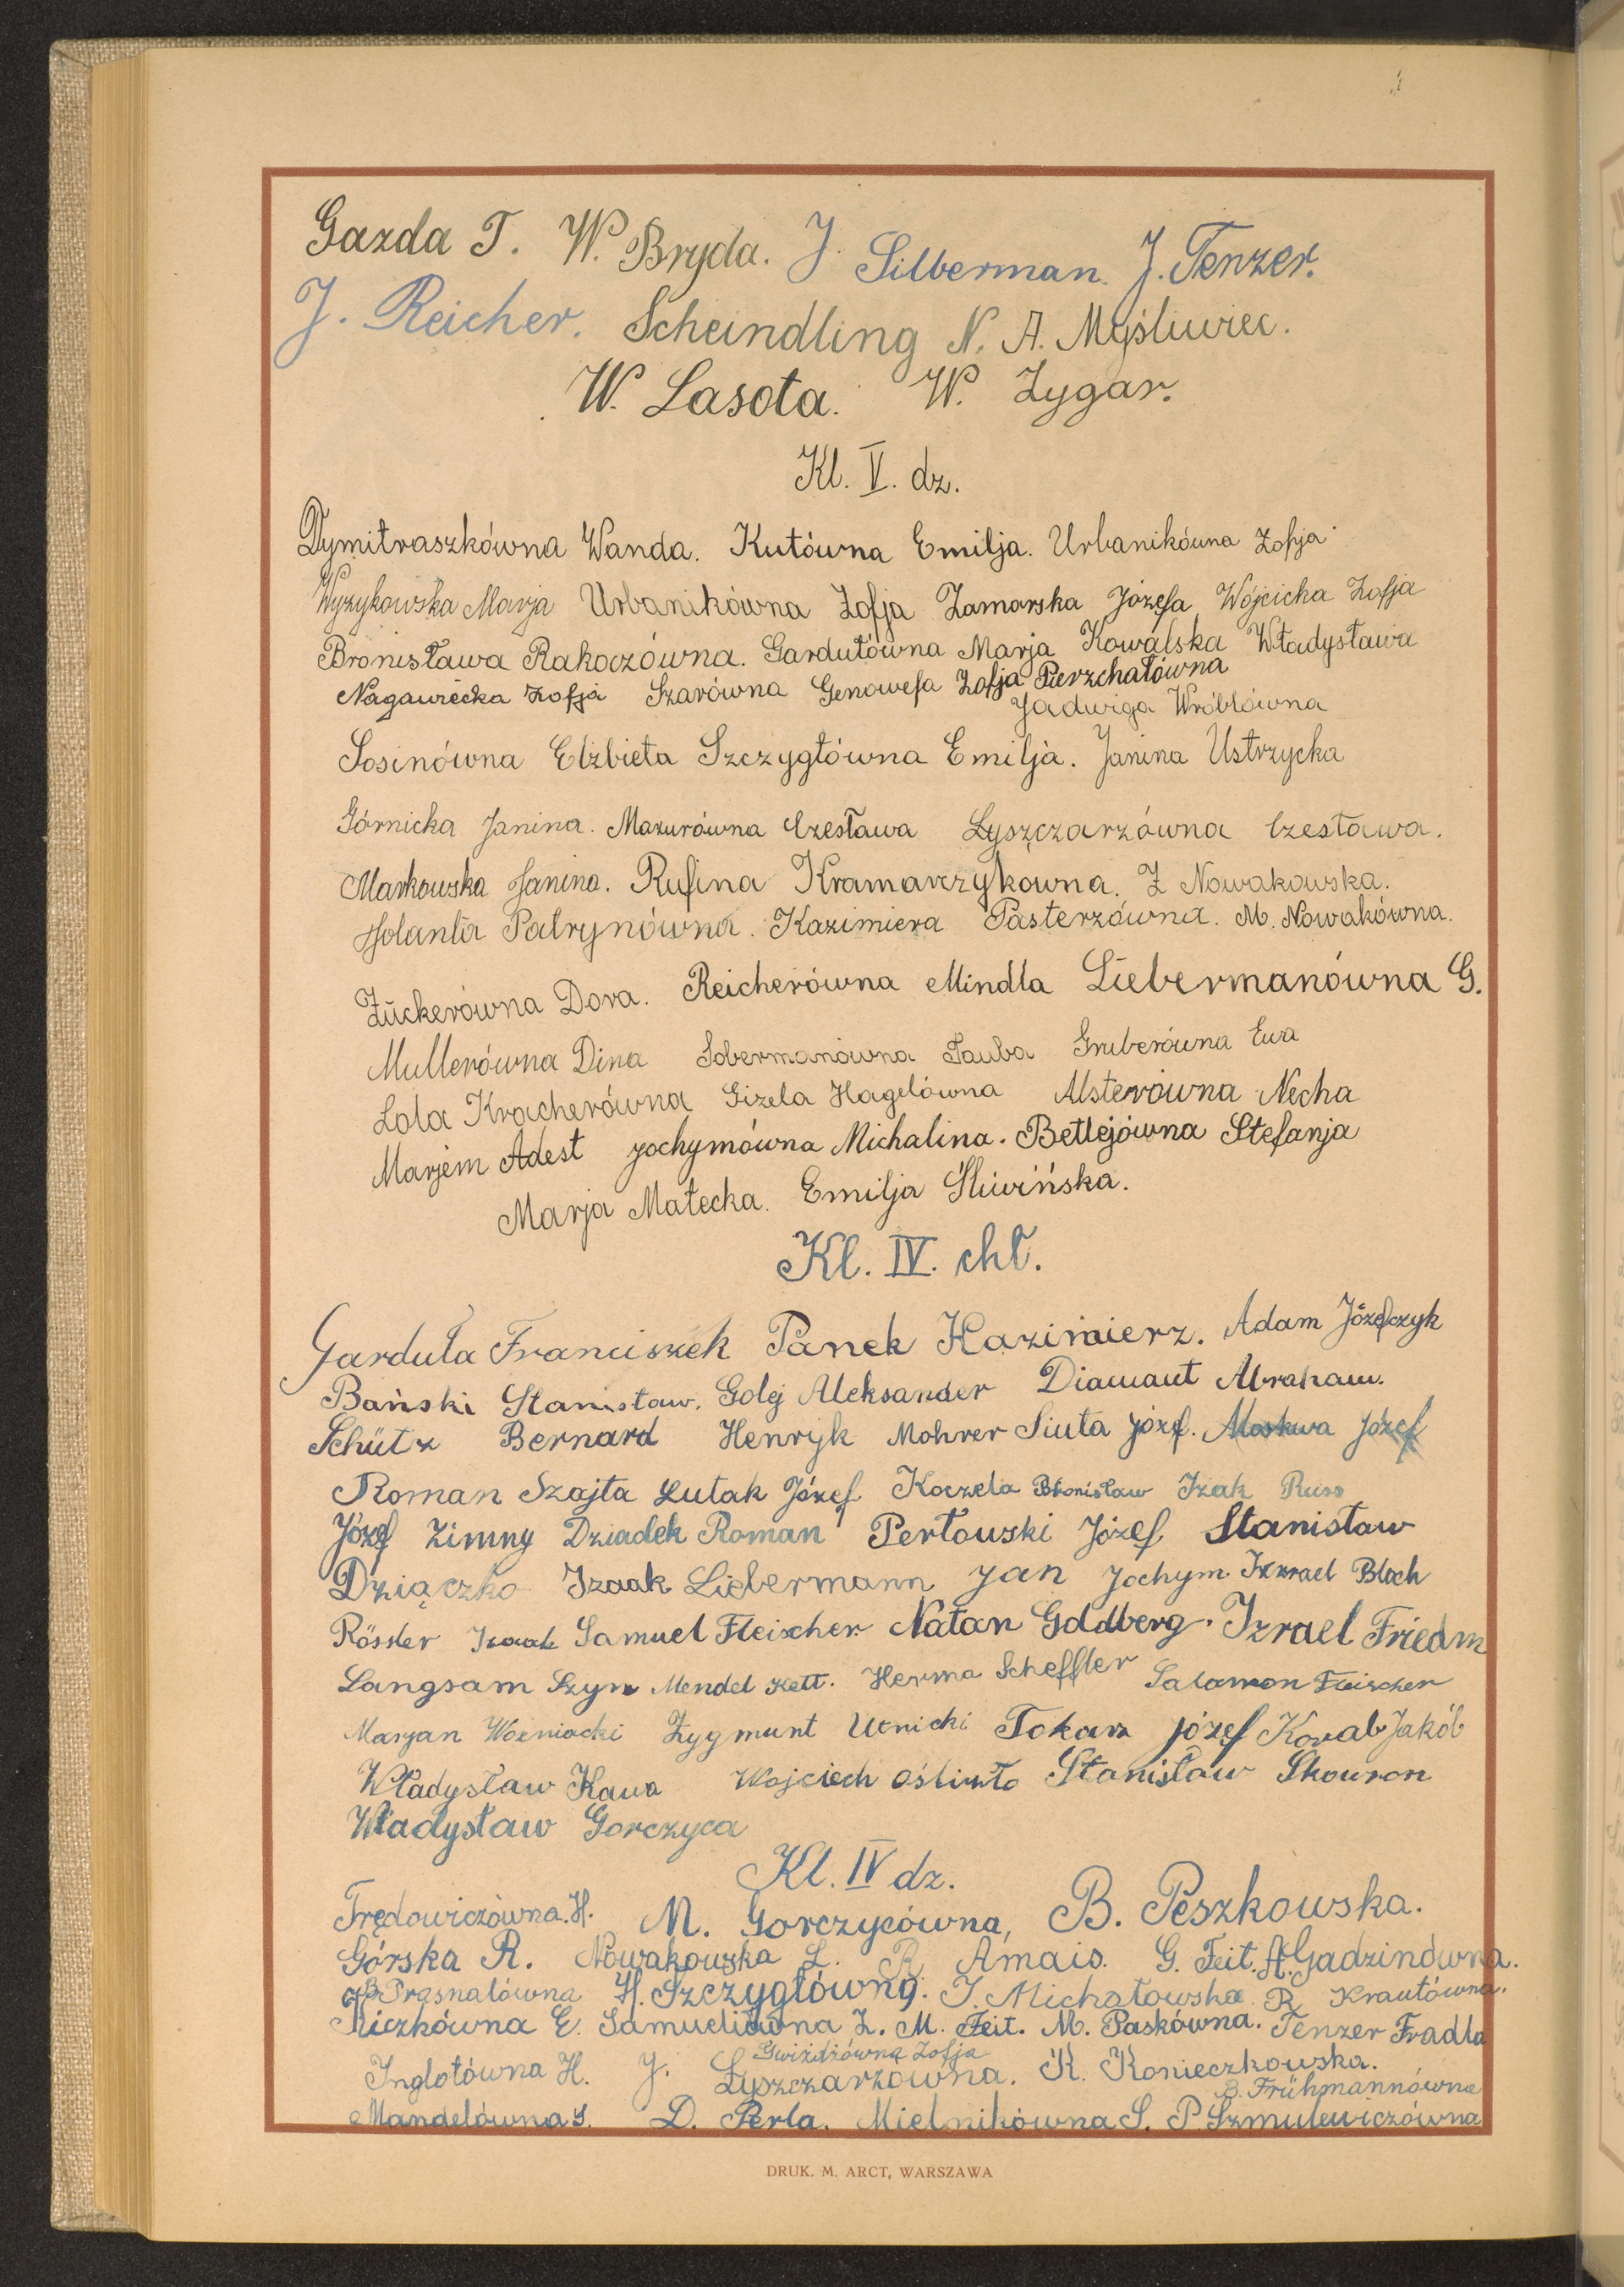 Gazda T. W. Bryda. J. Silberman. J. Tenzer.
J. Reicher. Scheindling N. A. Myśliwiec.
W. Lasota. W. Zygar.
Kl. V. dz.
Dymitraszkówna Wanda. Kutówna Emilja. Urbanikówna Zofja
Wyzykowska Marja Urbanikówna Zofja Zamorska Józefa Wójcicka Zofja
Bronisława Rakoczówna. Gardułówna Marja Kowalska Władysława
Nagawiecka Zofja Szarówna Genowefa Zofja Pierzchałówna
Jadwiga Wróblówna
Sosinówna Elżbieta Szczygłówna Emilja. Janina Ustrzycka
Górnicka Janina. Mazurówna Czesława Łyszczarzówna Czesława.
Markowska Janina. Rufina Kramarzykówna. Z Nowakowska.
Jolanta Patrynówna. Kazimiera Pasterzówna. M. Nowakówna.
Zückerówna Dora. Reicherówna Mindla Liebermanówna G.
Mullerówna Dina Sobermanówna Tauba Gruberówna Ewa
Lola Kracherówna Gizela Hagelówna Alsterówna Necha
Marjem Adest Jochymówna Michalina. Betlejówna Stefanja
Marja Małecka. Emilja Śliwińska.
Kl. IV. chł.
Garduła Franciszek Panek Kazimierz. Adam Józefczyk
Bański Stanisław. Golej Aleksander Diamant Abraham.
Schütz Bernard Henryk Mohrer Siuta Józef. Moskwa Józef
Roman Szajta Lutak Józef Koczela Bronisław Izak Russ
Józef Zimny Dziadek Roman Perłowski Józef Stanisław
Dziączko Izaak Liebermann Jan Jochym Izrael Bloch
Rössler Izaak Samuel Fleischer Natan Goldberg. Izrael Friedm
Langsam Szyn Mendel Kett. Herma Scheffler Salamon Fleischer
Marjan Woźniacki Zygmunt Ucnicki Tokarz Józef Koval Jakób
Władysław Kawa Wojciech Oślizło Stanisław Skowron
Władysław Gorczyca
Kl. IV dz.
Trędowiczówna. H. M. Gorczycówna, B. Peszkowska.
Górska R. Nowakowska L. R Amais. G. Feit. A. Gadzinówna.
B. Prasnalówna H. Szczygłówna. J. Michałowska R. Krautówna.
Riczkówna E. Samuelówna Z. M. Feit. M. Paskówna. Tenzer Fradla
Gwiżdżówna Zofja
Inglotówna H. J. Łyszczarzówna. K. Konieczkowska.
B. Frühmannówna
Mandelówna S. D. Perla. Mielnikówna S. P. Szmulewiczówna
DRUK. M. ARCT, WARSZAWA